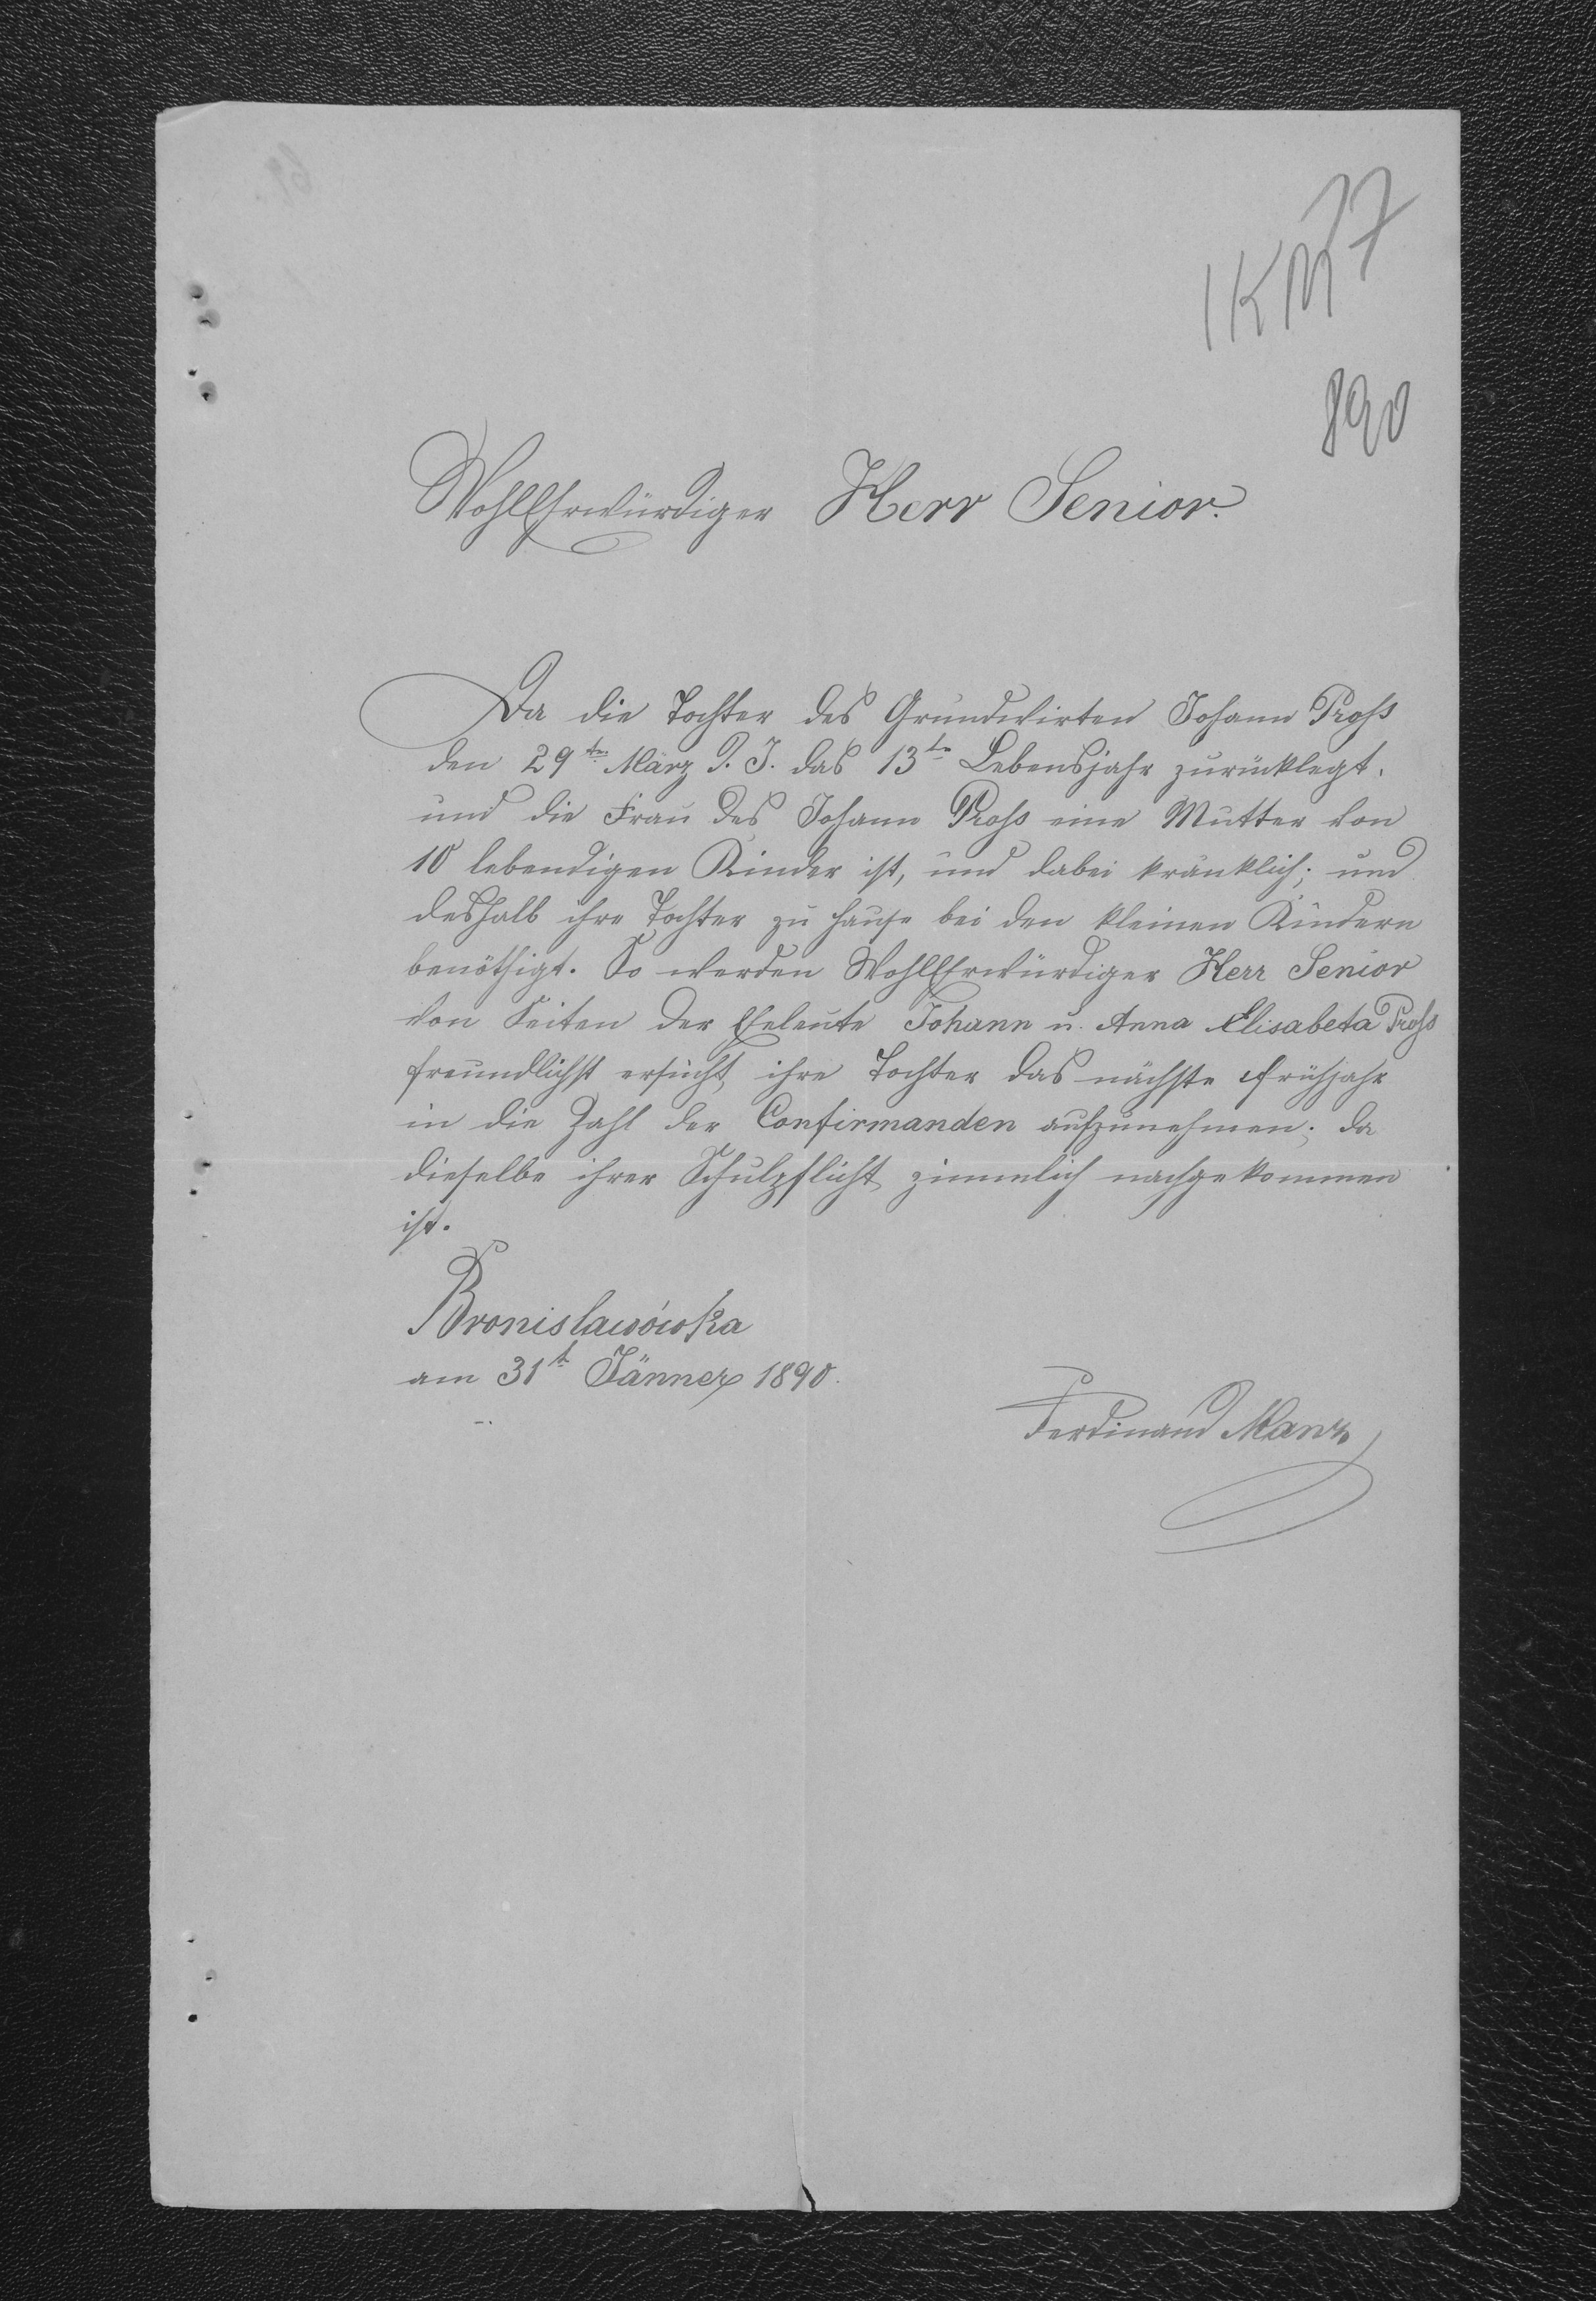 77
890
WohlEhrwürdiger Herr Senior.
Da die Tochter des Grundwirten Johann Proß
den 29ten März d. J. das 13te Lebensjahr zurücklegt.
und die Frau des Johann Proß eine Mutter von
10 lebendigen Kinder ist, und dabei kränklich; und
deshalb ihre Tochter zu hause bei den kleinen Kindern
benöthigt. So werden WohlEhrwürdiger Herr Senior
von Seiten der Eheleute Johann u. Anna Elisabeta Proß
freundlichst ersucht, ihre Tochter das nächste Frühjahr
in die Zahl der Confirmanden aufzunehmen; da
dieselbe ihrer Schulpflicht zimmlich nachgekommen
ist.
Bronislawówka
am 31t Jänner 1890.
Ferdinand Manz